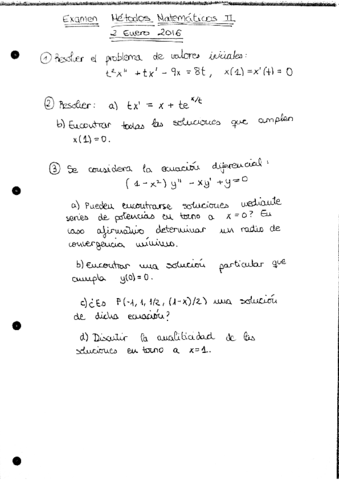 Examen Métodos Matemáticos II.
2 Enero 2016
① Resolver el problema de valores iniciales:
t²x'' + tx' - 9x = 8t, x(1)=x'(1)=0
② Resolver: a) tx' = x + te^{x/t}
b) Encontrar todas las soluciones que cumplen
x(1)=0.
③ Se considera la ecuación diferencial:
(1-x²) y'' - xy' + y = 0
a) Pueden encontrarse soluciones mediante
series de potencias en torno a x=0? En
caso afirmativo determinar un radio de
convergencia mínimo.
b) Encontrar una solución particular que
cumpla y(0)=0.
c) ¿Es F(-1, 1, 1/2, (1-x)/2) una solución
de dicha ecuación?
d) Discutir la analiticidad de las
soluciones en torno a x=1.